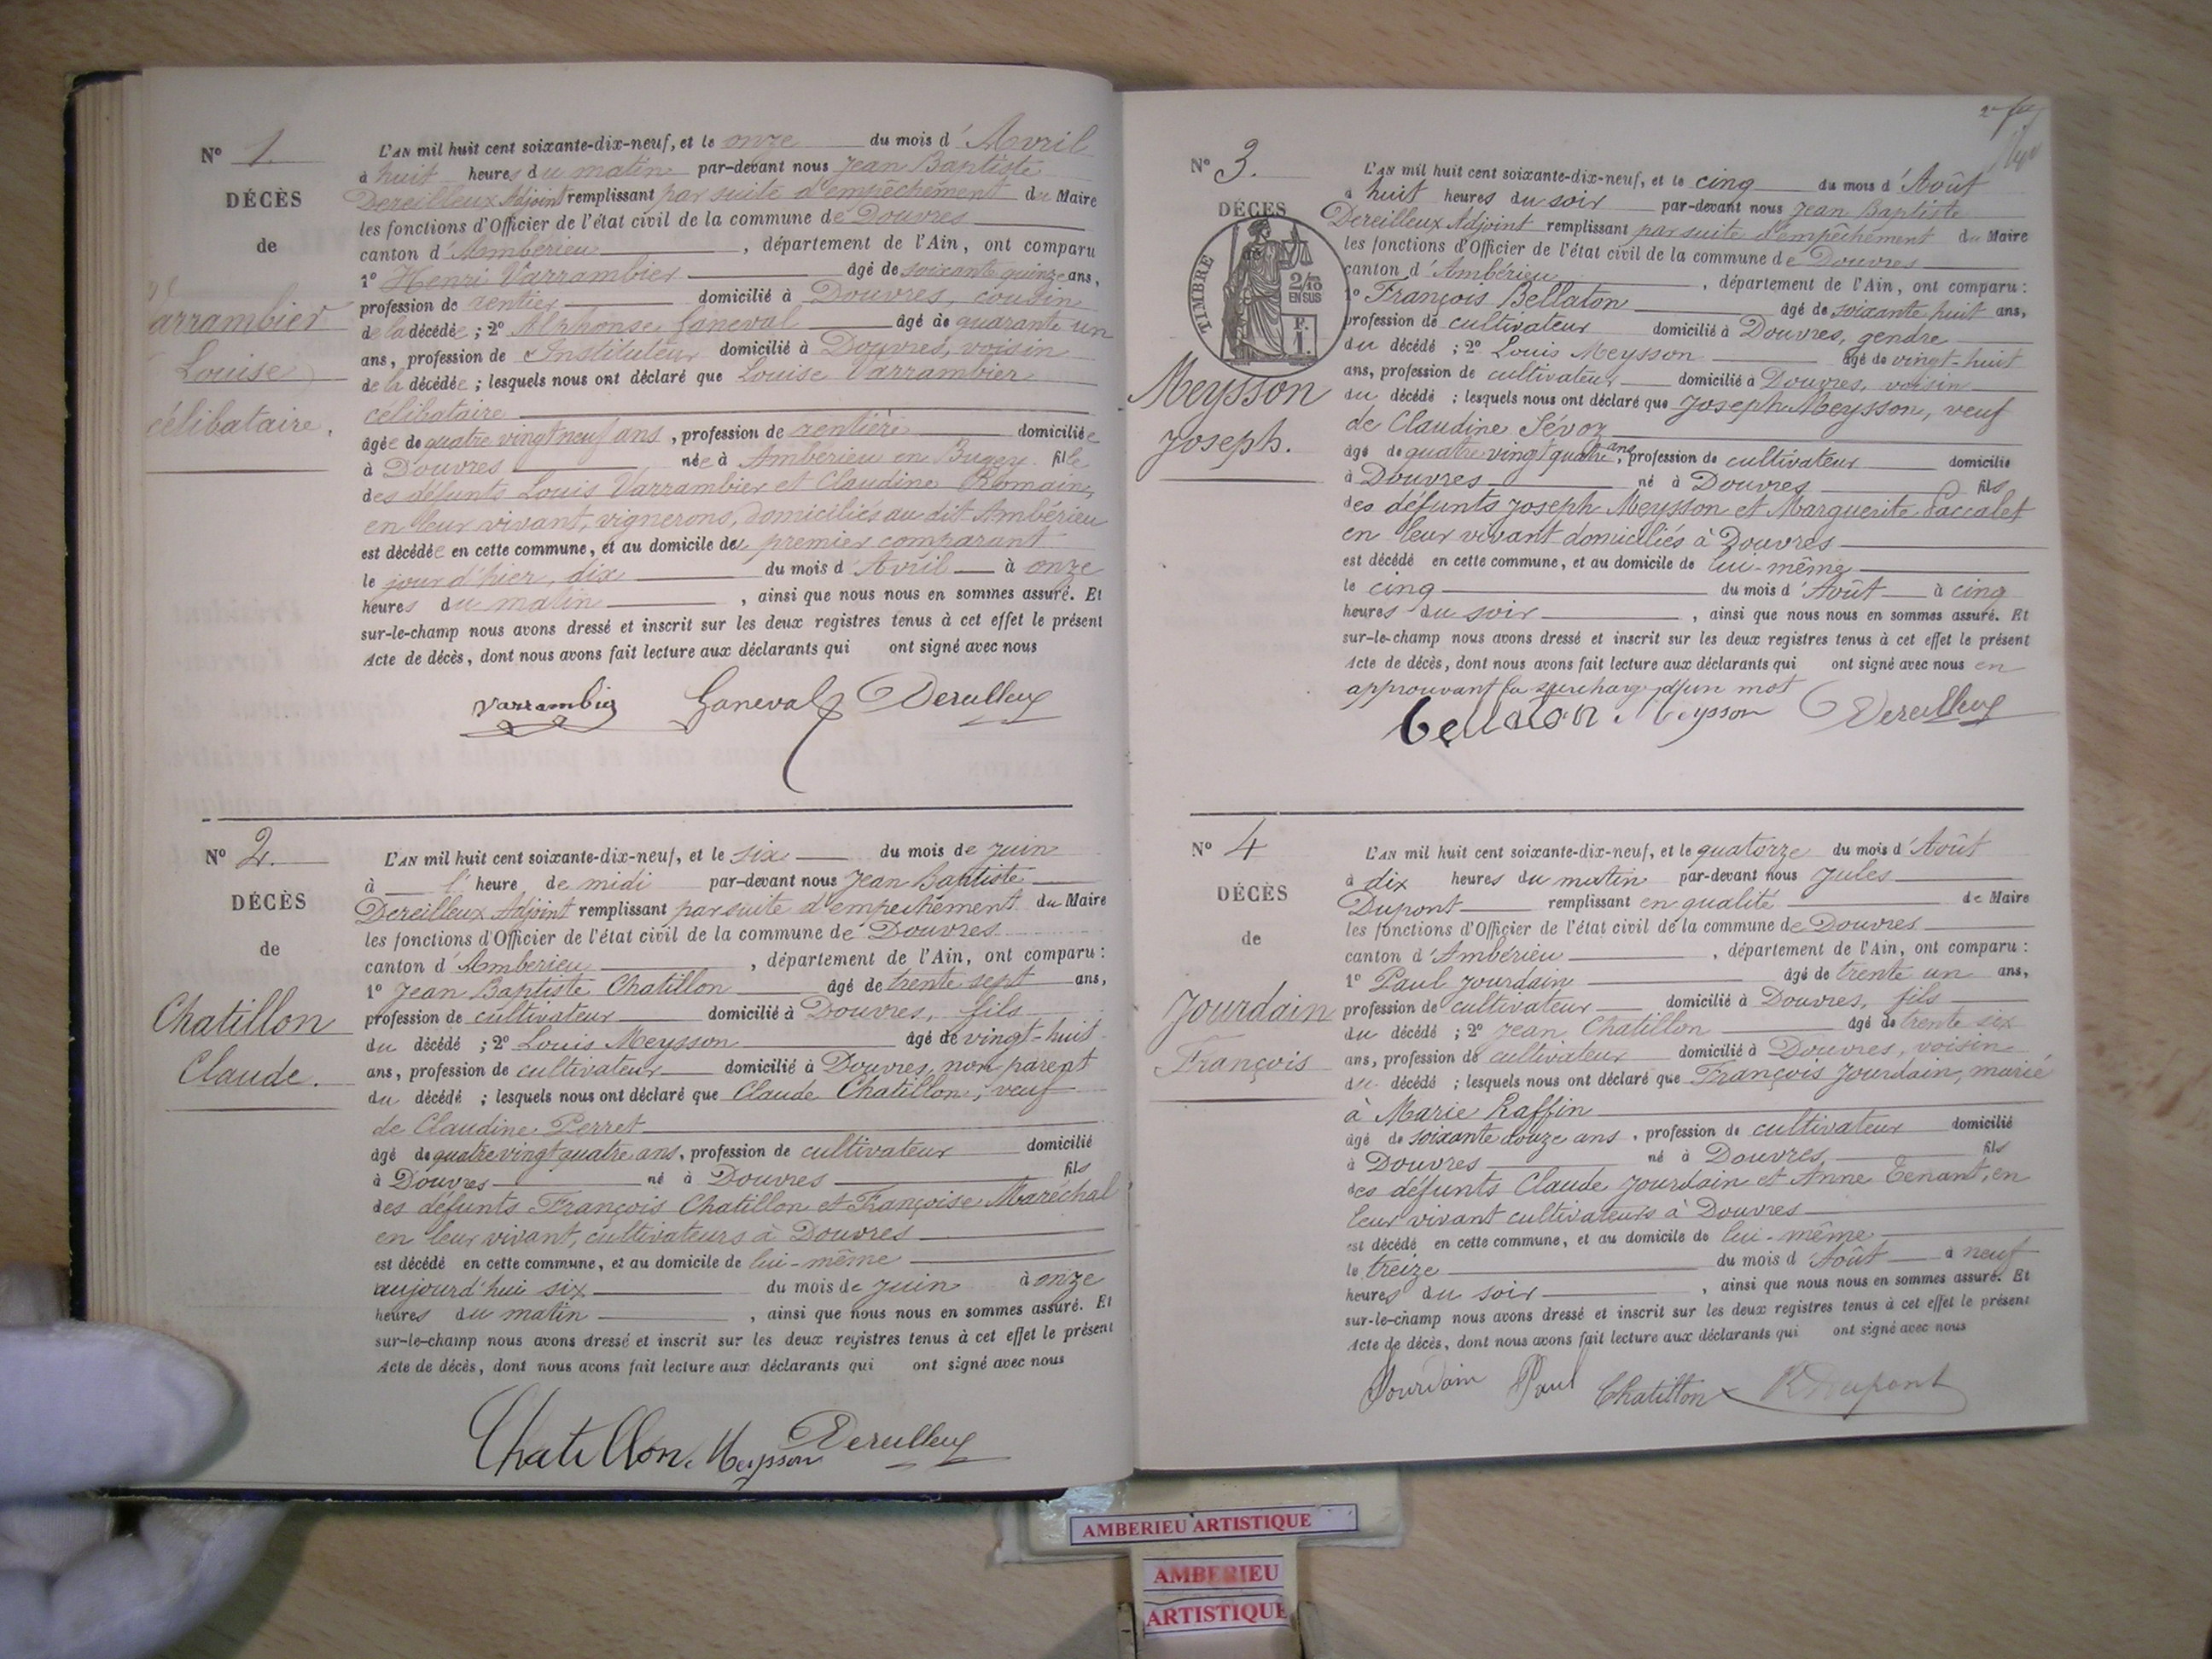 N° 1.
DÉCÈS
de
Varrambier
Louise
célibataire.
L'AN mil huit cent soixante-dix-neuf, et le onze du mois d'Avril
à huit heures du matin par-devant nous Jean Baptiste
Dereilleux Adjoint remplissant par suite d'empêchement du Maire
les fonctions d'Officier de l'état civil de la commune de Douvres
canton d'Amberieu, département de l'Ain, ont comparu
1° Henri Varrambier âgé de soixante quinze ans,
profession de rentier domicilié à Douvres, cousin
de la décédée ; 2° Alphonse Ganeval âgé de quarante un
ans, profession de Instituteur domicilié à Douvres, voisin
de la décédée ; lesquels nous ont déclaré que Louise Varrambier
célibataire
âgée de quatre vingt neuf ans, profession de rentière domiciliée
à Douvres née à Amberieu en Bugey fille
des défunts Louis Varrambier et Claudine Romain,
en leur vivant, vignerons, domiciliés au dit Ambérieu
est décédée en cette commune, et au domicile du premier comparant
le jour d'hier, dix du mois d'Avril à onze
heures du matin, ainsi que nous nous en sommes assuré. Et
sur-le-champ nous avons dressé et inscrit sur les deux registres tenus à cet effet le présent
Acte de décès, dont nous avons fait lecture aux déclarants qui ont signé avec nous
Varrambier Ganeval Dereilleux
N° 2.
DÉCÈS
de
Chatillon
Claude.
L'AN mil huit cent soixante-dix-neuf, et le six du mois de juin
à l'heure de midi par-devant nous Jean Baptiste
Dereilleux Adjoint remplissant par suite d'empechément du Maire
les fonctions d'Officier de l'état civil de la commune de Douvres
canton d'Amberieu, département de l'Ain, ont comparu :
1° Jean Baptiste Chatillon âgé de trente sept ans,
profession de cultivateur domicilié à Douvres, fils
du décédé ; 2° Louis Meysson âgé de vingt-huit
ans, profession de cultivateur domicilié à Douvres, non parent
du décédé ; lesquels nous ont déclaré que Claude Chatillon, veuf
de Claudine Perret
âgé de quatre vingt quatre ans, profession de cultivateur domicilié
à Douvres né à Douvres fils
des défunts François Chatillon et Françoise Maréchal
en leur vivant, cultivateurs à Douvres
est décédé en cette commune, et au domicile de lui-même
aujourd'hui six du mois de juin à onze
heures du matin, ainsi que nous nous en sommes assuré. Et
sur-le-champ nous avons dressé et inscrit sur les deux registres tenus à cet effet le présent
Acte de décès, dont nous avons fait lecture aux déclarants qui ont signé avec nous
Chatillon Meysson Dereilleux
N° 3.
DÉCÈS
TIMBRE
2/10
EN SUS
F.
1.
Meysson
Joseph.
L'AN mil huit cent soixante-dix-neuf, et le cinq du mois d'Août
à huit heures du soir par-devant nous Jean Baptiste
Dereilleux Adjoint remplissant par suite d'empêchément du Maire
les fonctions d'Officier de l'état civil de la commune de Douvres
canton d'Ambérieu, département de l'Ain, ont comparu :
1° François Bellaton âgé de soixante huit ans,
profession de cultivateur domicilié à Douvres, gendre
du décédé ; 2° Louis Meysson âgé de vingt-huit
ans, profession de cultivateur domicilié à Douvres, voisin
du décédé ; lesquels nous ont déclaré que Joseph Meysson, veuf
de Claudine Sévoz
âgé de quatre vingt quatre ans, profession de cultivateur domicilié
à Douvres né à Douvres fils
des défunts Joseph Meysson et Marguerite Paccalet
en leur vivant domiciliés à Douvres
est décédé en cette commune, et au domicile de lui-même
le cinq du mois d'Août à cinq
heures du soir, ainsi que nous nous en sommes assuré. Et
sur-le-champ nous avons dressé et inscrit sur les deux registres tenus à cet effet le présent
Acte de décès, dont nous avons fait lecture aux déclarants qui ont signé avec nous en
approuvant la surcharge d'un mot
Bellaton Meysson Dereilleux
N° 4
DÉCÈS
de
Jourdain
François
L'AN mil huit cent soixante-dix-neuf, et le quatorze du mois d'Août
à dix heures du matin par-devant nous Jules
Dupont remplissant en qualité de Maire
les fonctions d'Officier de l'état civil de la commune de Douvres
canton d'Ambérieu, département de l'Ain, ont comparu :
1° Paul Jourdain âgé de trente un ans,
profession de cultivateur domicilié à Douvres, fils
du décédé ; 2° Jean Chatillon âgé de trente six
ans, profession de cultivateur domicilié à Douvres, voisin
du décédé ; lesquels nous ont déclaré que François Jourdain, marié
à Marie Raffin
âgé de soixante douze ans, profession de cultivateur domicilié
à Douvres né à Douvres fils
des défunts Claude Jourdain et Anne Tenant, en
leur vivant cultivateurs à Douvres
est décédé en cette commune, et au domicile de lui-même
le treize du mois d'Août à neuf
heures du soir, ainsi que nous nous en sommes assuré. Et
sur-le-champ nous avons dressé et inscrit sur les deux registres tenus à cet effet le présent
Acte de décès, dont nous avons fait lecture aux déclarants qui ont signé avec nous
Jourdain Paul Chatillon Dupont
AMBERIEU ARTISTIQUE
AMBERIEU
ARTISTIQUE